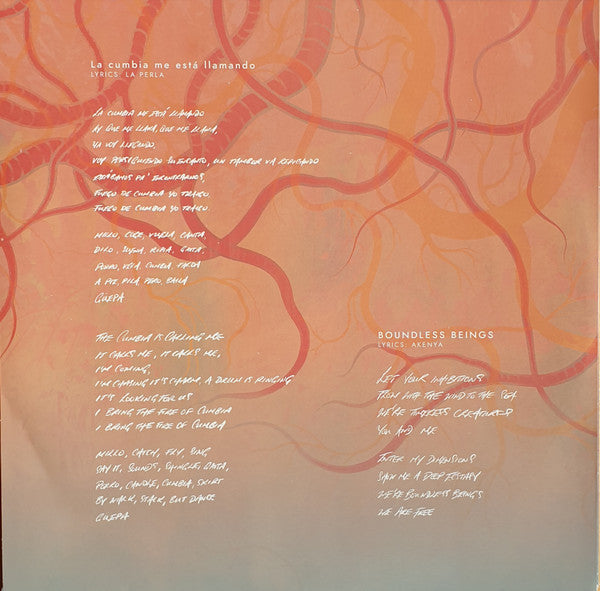 La cumbia me está llamando
LYRICS: LA PERLA
LA CUMBIA ME ESTÁ LLAMANDO
AY QUE ME LLAMA, QUE ME LLAMA,
YA VOY LLEGANDO
VOY PERSIGUIENDO SU ENCANTO, UN TAMBOR VA REPICANDO
PA' ENCONTRARNOS,
FUEGO DE CUMBIA YO TRAIGO
FUEGO DE CUMBIA YO TRAIGO
MILLO, COGE, VUELA, CANTA,
DILO, SUENA, RIPIA, GAITA,
PORRO, VELA, CUMBIA, FALDA
A PIE, PILA, PERO, BAILA
GUEPA
THE CUMBIA IS CALLING ME
IT CALLS ME, IT CALLS ME,
I'M COMING,
I'M CHASING IT'S CHARM, A DRUM IS RINGING
IT'S LOOKING FOR US
I BRING THE FIRE OF CUMBIA
I BRING THE FIRE OF CUMBIA
MILLO, CATCH, FLY, SING
SAY IT, SOUNDS, GAITA,
PORRO, CANDLE, CUMBIA, SKIRT
BY WALK, STACK, BUT DANCE
GUEPA
BOUNDLESS BEINGS
LYRICS: AKENYA
LET YOUR INHIBITIONS
THROW INTO THE WIND TO THE SEA
WE'RE TIMELESS CREATURES
YOU AND ME
ENTER MY DIMENSIONS
SHOW ME A DEEP ECSTASY
WE'RE BOUNDLESS BEINGS
WE ARE FREE